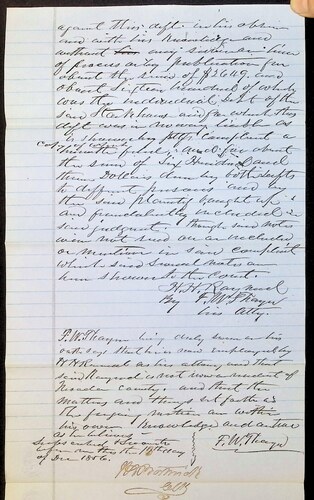 against this deft. in his absence
and with his knowledge and
without any service or
of process or by publication for
about the sum of $2649. and
about sixteen hundred of which
was the individual debt of the
said Starkhaus and for which this
deft was in no way liable as
is shown by pltfs complaint
herewith filed; and for about
the sum of Six Hundred and
three Dollars due by both defts
to different persons and by
the said plaintiff bought up
and fraudulently included in
said judgment. though said notes
were not sued on or included
or mention in said complaint
which said several notes are
here shown to the Court.
H. H. Raymond
By F. W. Thayer
his Atty.
F. W. Thayer being duly sworn on his
oath says that he is now employed by
H H Raymond as his attorney and that the
said Raymond is not now a resident of
county. and that the
matters and things set forth in
the foregoing motion are within
his own knowledge and are true
as he believes
Subscribed & sworn to
before me this the 18th day
of Dec 1856.
F. W. Thayer
Clk